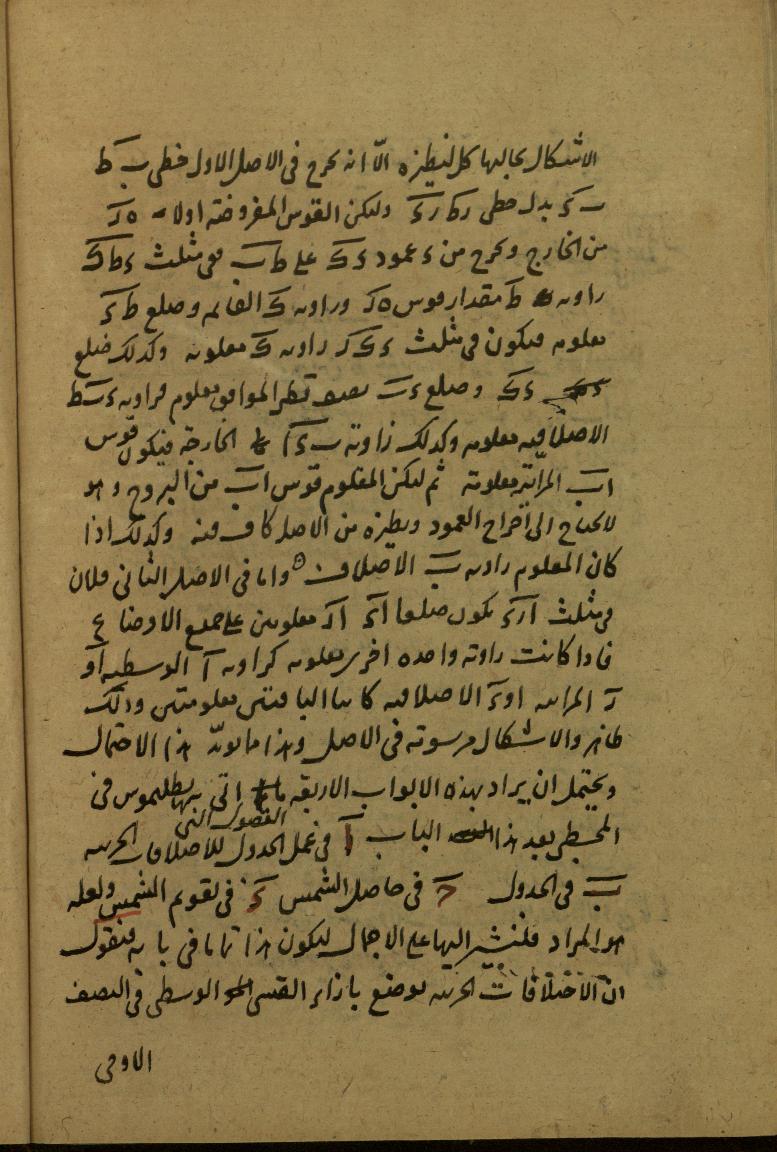 الاشكال بحالها كل لنظيره الا انه يخرج فى الاصل الاول خطى ب ط
ب ى بدل خطى ر ط ر ى وليكن القوس المفروضة اولا ه د
من الخارج ويخرج من ى عمود ى ك على ط ب ففى مثلث ى ط ك
زاويه ط مقدار قوس ه د وزاويه ك القايمه وضلع ط ى
معلومه فيكون فى مثلث ى ك زاويه ك معلومه وكذلك ضلع
ى ك وضلع ى ب نصف قطر الموافق معلوم فزاويه ى ب ط
الاختلافيه معلومه وكذلك زاوية ب ى ا الخارجة فيكون قوس
ا ب المرئية معلومة ثم ليكن المعلوم قوس ا ب من البروج وهو
لا يحتاج الى اخراج العمود ونظيره من الاصل كاف فيه وكذلك اذا
كان المعلوم زاويه ب الاختلاف واما فى الاصل الثانى فلان
فى مثلث ا د ى يكون ضلعا ا ى ا د معلومين على جميع الاوضاع
فاذا كانت زاوية واحده اخرى معلومه كزاويه ا الوسطيه او
د المرئيه او ى الاختلافيه كانتا الباقيتين معلومتين وذلك
ظاهر والاشكال مرسومة فى الاصل وهذا ما يؤيد هذا الاحتمال
ويحتمل ان يراد بهذه الابواب الاربعه ما اتى بها بطلميوس فى
المجسطى بعد هذا الفصول التى الباب ا فى عمل الجدول للاختلافات الجزئيه
ب فى الجدول ح فى حاصل الشمس ى فى تقويم الشمس ولعله
هو المراد فلنشير اليها على الاجمال ليكون هذا تاما فى بابه فنقول
ان الاختلافات الجزئيه توضع بازاء القسى الوسطى فى النصف
الاوجى